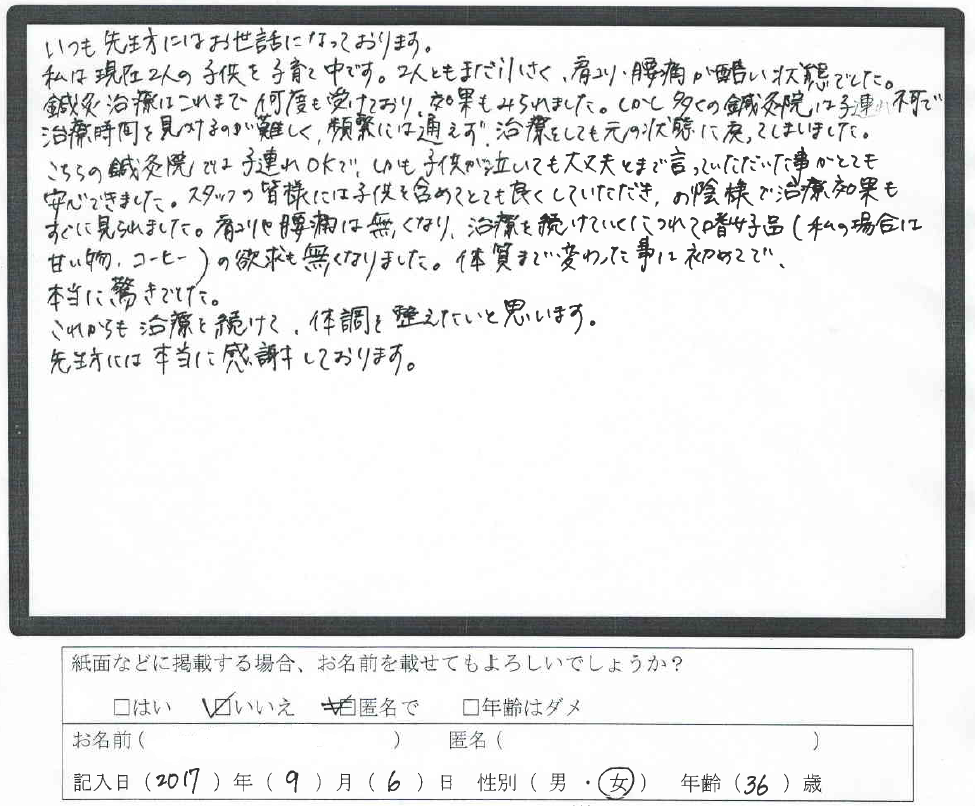 いつも先生方にはお世話になっております。
私は現在2人の子供を子育て中です。2人ともまだ小さく、肩コリ・腰痛が酷い状態でした。
鍼灸治療はこれまで何度も受けており、効果もみられました。しかし多くの鍼灸院は子連れ不可で
治療時間を見つけるのが難しく、頻繁には通えず、治療をしても元の状態に戻ってしまいました。
こちらの鍼灸院では子連れOKで、しかも子供が泣いても大丈夫とまで言っていただいた事がとても
安心できました。スタッフの皆様には子供を含めてとても良くしていただき、お陰様で治療効果も
すぐに見られました。肩コリや腰痛は無くなり、治療を続けていくにつれて嗜好品(私の場合は
甘い物、コーヒー)の欲求も無くなりました。体質まで変わった事は初めてで、
本当に驚きでした。
これからも治療を続けて、体調を整えたいと思います。
先生方には本当に感謝しております。
紙面などに掲載する場合、お名前を載せてもよろしいでしょうか?
□はい ☑いいえ □匿名で □年齢はダメ
お名前( ) 匿名( )
記入日(2017)年(9)月(6)日 性別(男・女) 年齢(36)歳